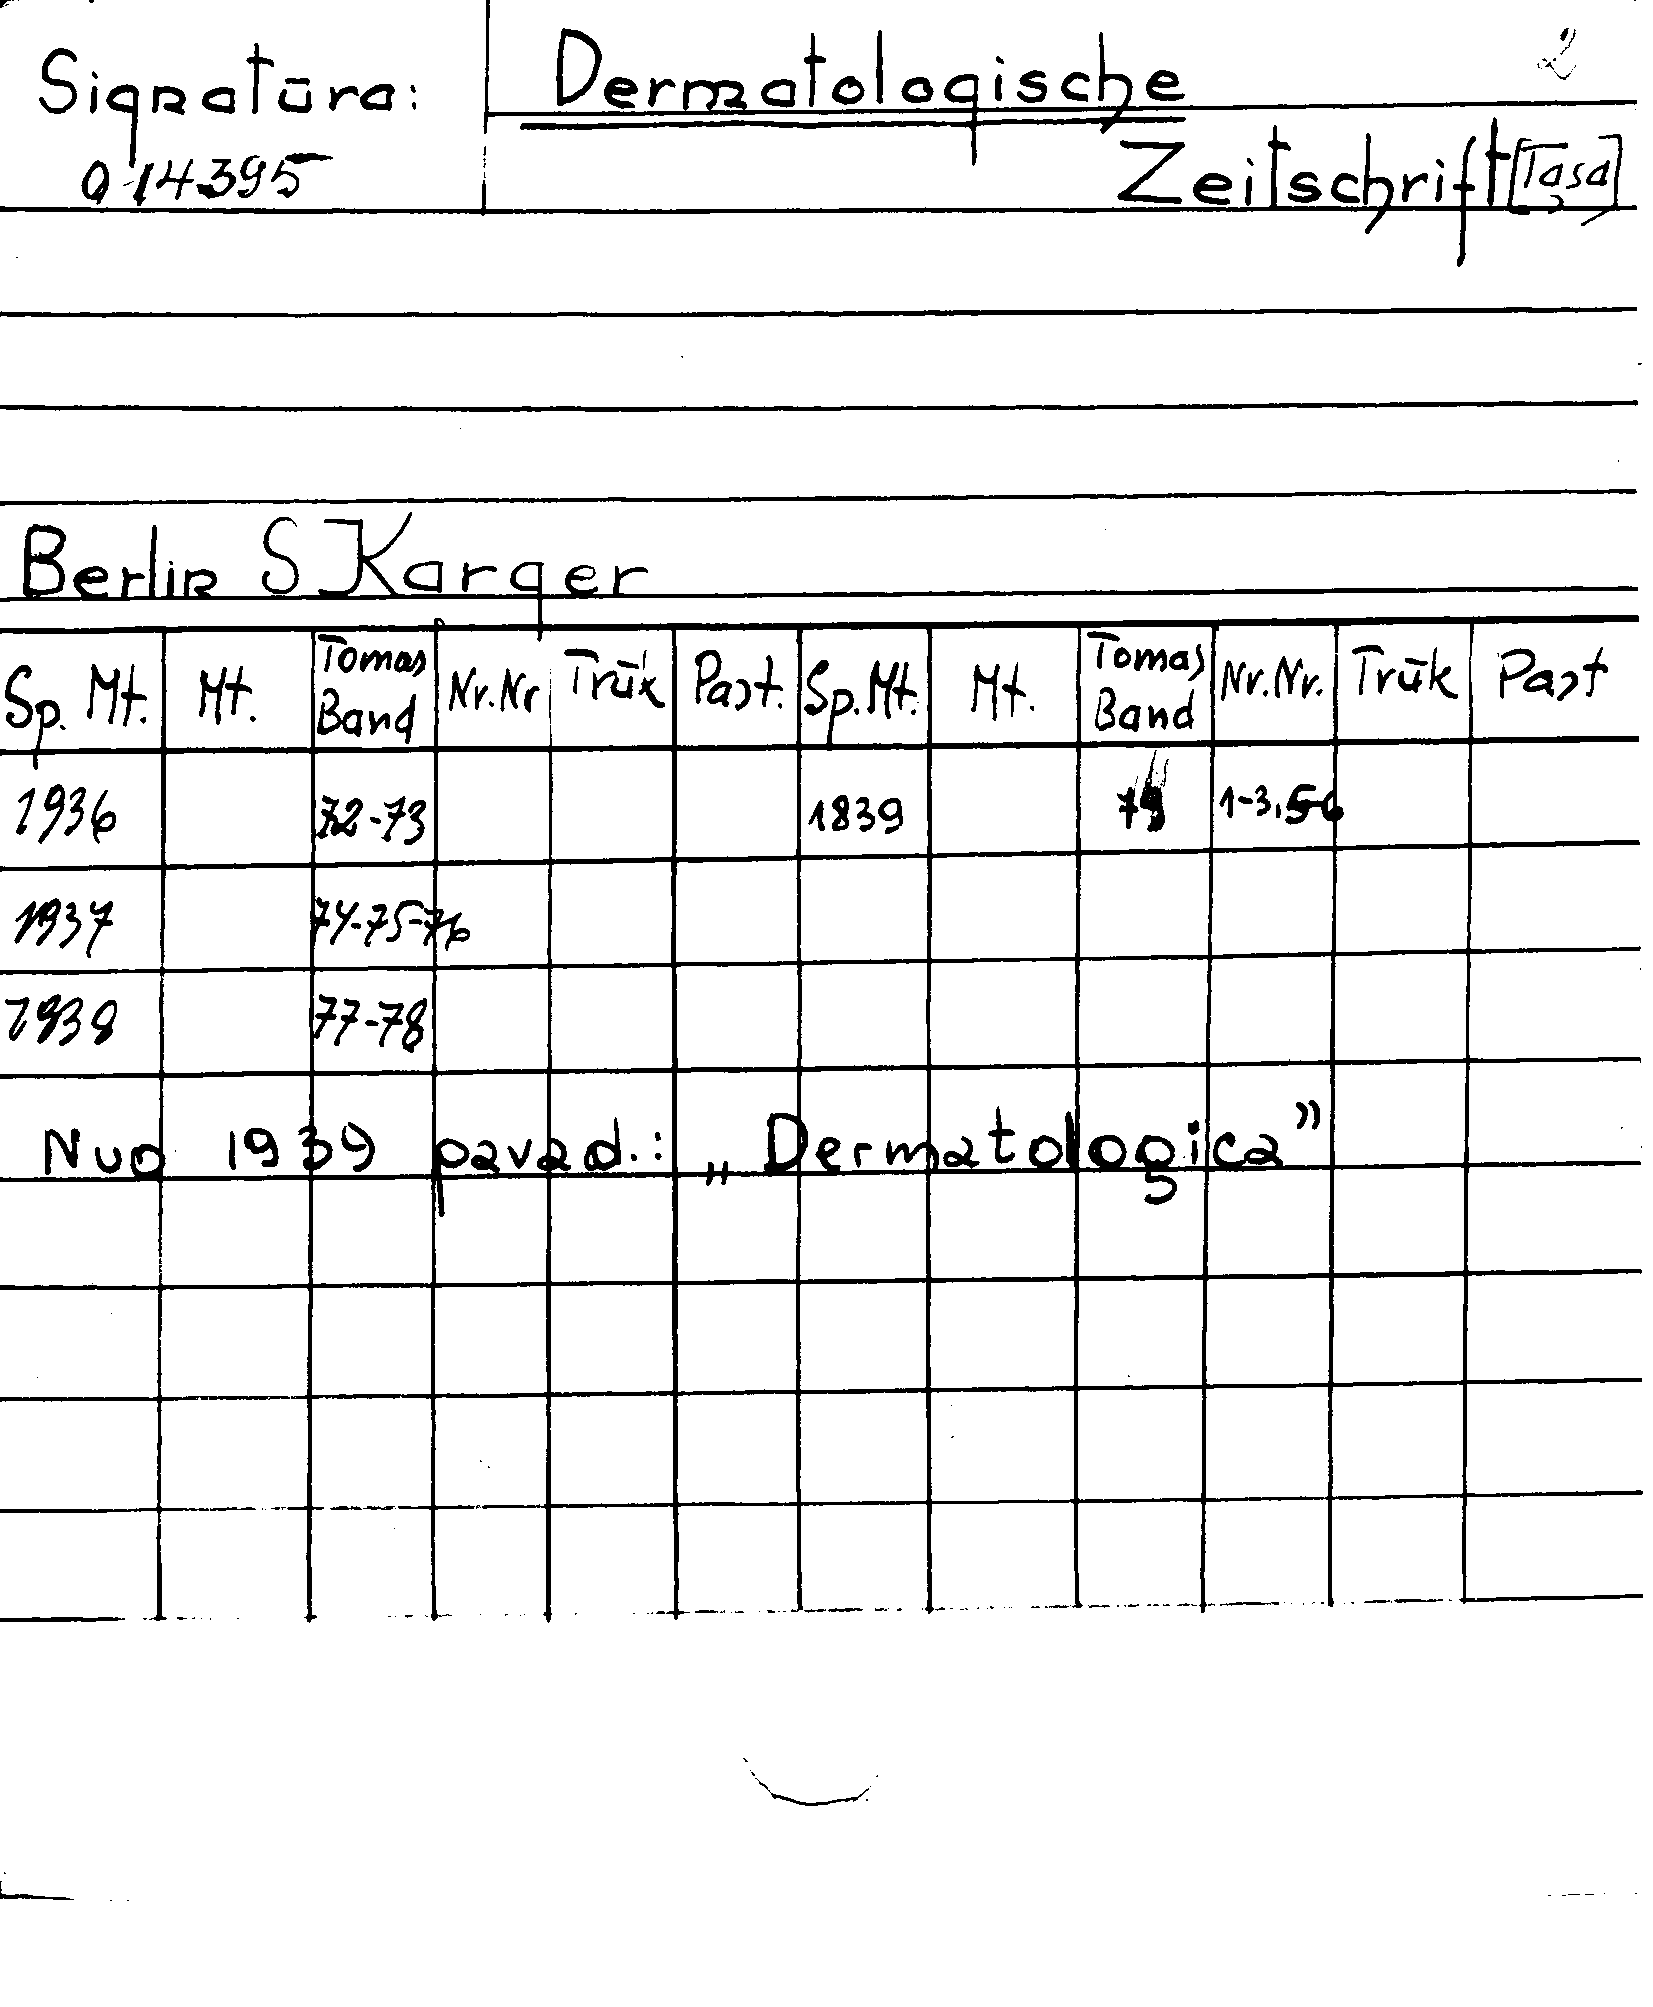 2
Signatūra: Dermatologische
014395 Zeitschrift [Tąsa]
Berlin S Karger
Sp. Mt. Mt. Tomas Band Nr. Nr Trūk Past. Sp. Mt. Mt. Tomas Band Nr. Nr. Trūk Past
1936 72-73 1839 79 1-3,5-6
1937 74-75-76
1938 77-78
Nuo 1939 pavad.: „Dermatologica”